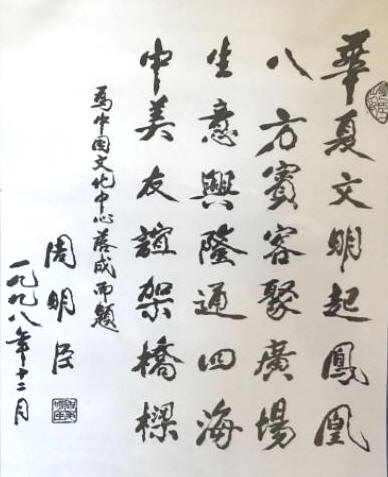 華夏文明起鳳凰
八方賓客聚廣場
生意興隆通四海
中美友誼架橋樑
為中国文化中心落成而題
周明臣
一九九八年十二月